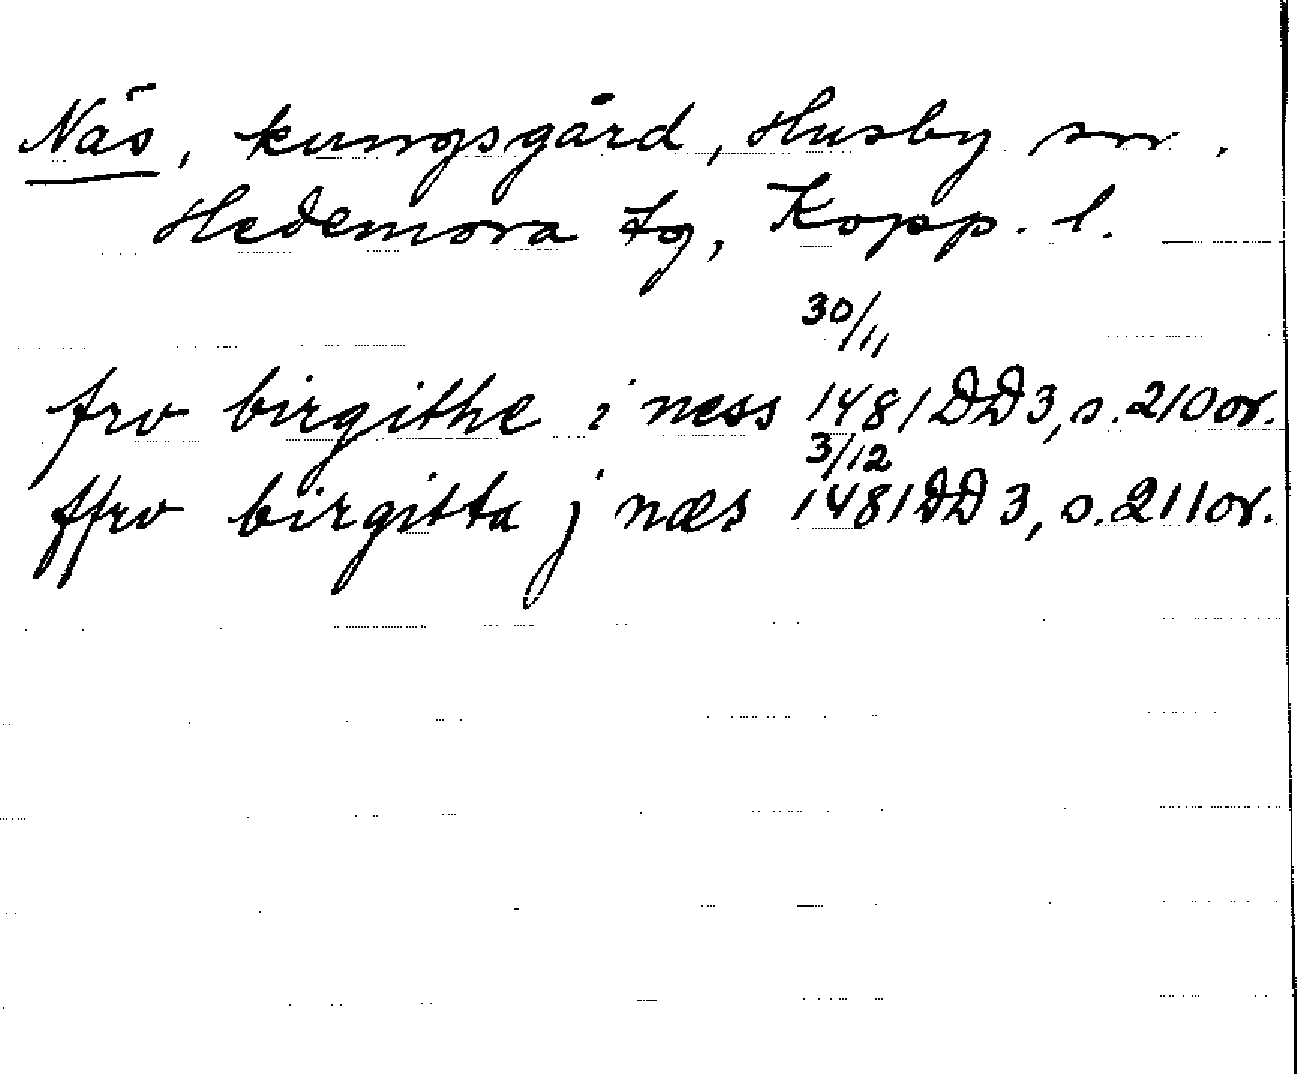 Näs, kungsgård, Husby sn.
Hedemora tg, Kopp. l.
30/11
fro birgithe i ness 1481 DD3, s. 210 or.
3/12
ffro birgitta j næs 1481 DD 3, s. 211 or.